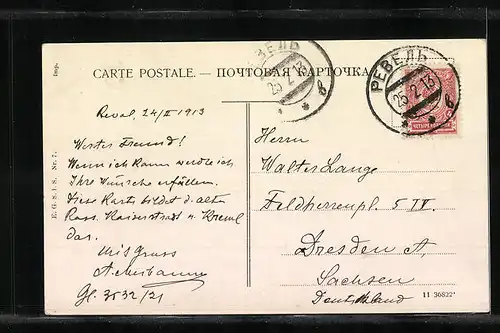 Imp.
CARTE POSTALE. — ПОЧТОВАЯ КАРТОЧКА
РЕВЕЛЬ
25 2 13
в
РЕВЕЛЬ
25 2 13
в
E. G. S. I. S. Nr. 7.
Reval, 24/II 1913
Werter Freund!
Wenn ich kann werde ich
Ihre Wünsche erfüllen.
Diese Karte bildet d. alte
Russ. Kaiserstadt u Kreml
das.
Mit Gruss
Gl. 3532/21
Herrn
Walter Lange
5 IV.
Dresden A,
Sachsen
Deutschland
11 36822